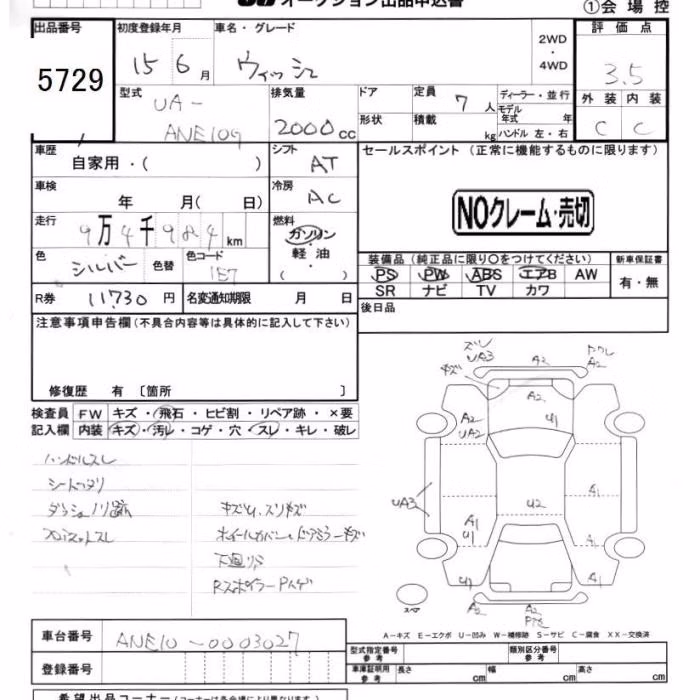 オークション出品申込書
①会場控
出品番号 5729
初度登録年月 15 6月
車名・グレード ウィッシュ
2WD・4WD
評価点 3.5
外装 C 内装 C
型式 UA-ANE10G
排気量 2000cc
ドア
形状
定員 7人
積載 kg
ディーラー・並行
モデル年式 年
ハンドル 左・右
車歴 自家用・( )
シフト AT
セールスポイント (正常に機能するものに限ります)
NOクレーム・売切
車検 年 月( 日)
冷房 AC
走行 9万4千984km
燃料 ガソリン・軽油・( )
色 シルバー 色替 色コード 1E7
装備品 (純正品に限り○をつけてください)
PS PW ABS エアB AW
SR ナビ TV カワ
新車保証書 有・無
R券 11,730円
名変通知期限 月 日
後日品
注意事項申告欄(不具合内容等は具体的に記入して下さい)
修復歴 有〔箇所 〕
検査員記入欄
FW キズ・飛石・ヒビ割・リペア跡・×要
内装 キズ・汚レ・コゲ・穴・スレ・キレ・破レ
ハンドルスレ
シートヘタリ
キズ有、スリキズ
ホイールカバー・ドアミラーキズ
下廻りサビ
Rスポイラー Pハゲ
ズレ
UA3
キズ
A2
A2
A2
A2
UA2
U1
UA3
A1
U1
U2
A1
A1
A1
U1
A2
A2
スペア
A-キズ E-エクボ U-凹み W-補修跡 S-サビ C-腐食 XX-交換済
車台番号 ANE10-0003027
登録番号
型式指定番号 参考
類別区分番号 参考
車庫証明用 参考 長さ cm 幅 cm 高さ cm
希望出品コーナー